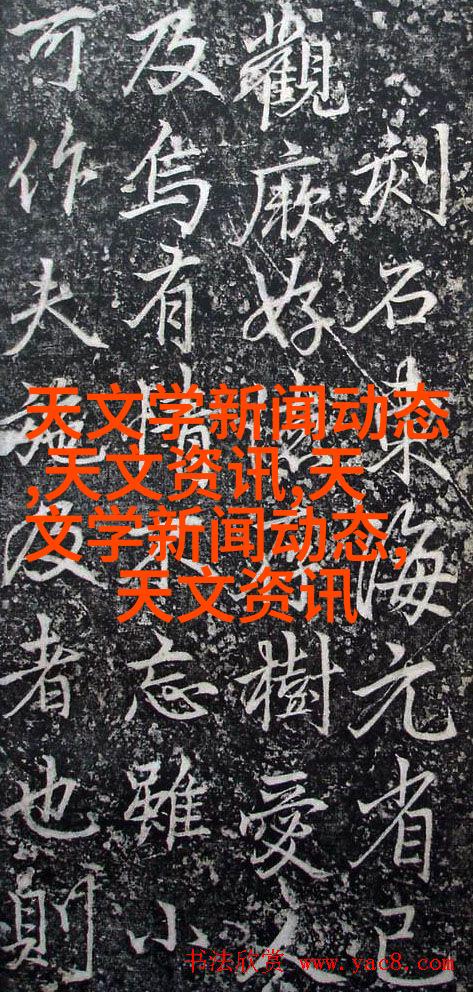 刻石東海元省己
觀厥好樹愛
及烏有情不忘雖小
可作夫施及者也則
天文学新闻动态
,天文资讯,天
文学新闻动态,
天文资讯
书法欣赏 www.yac8.com